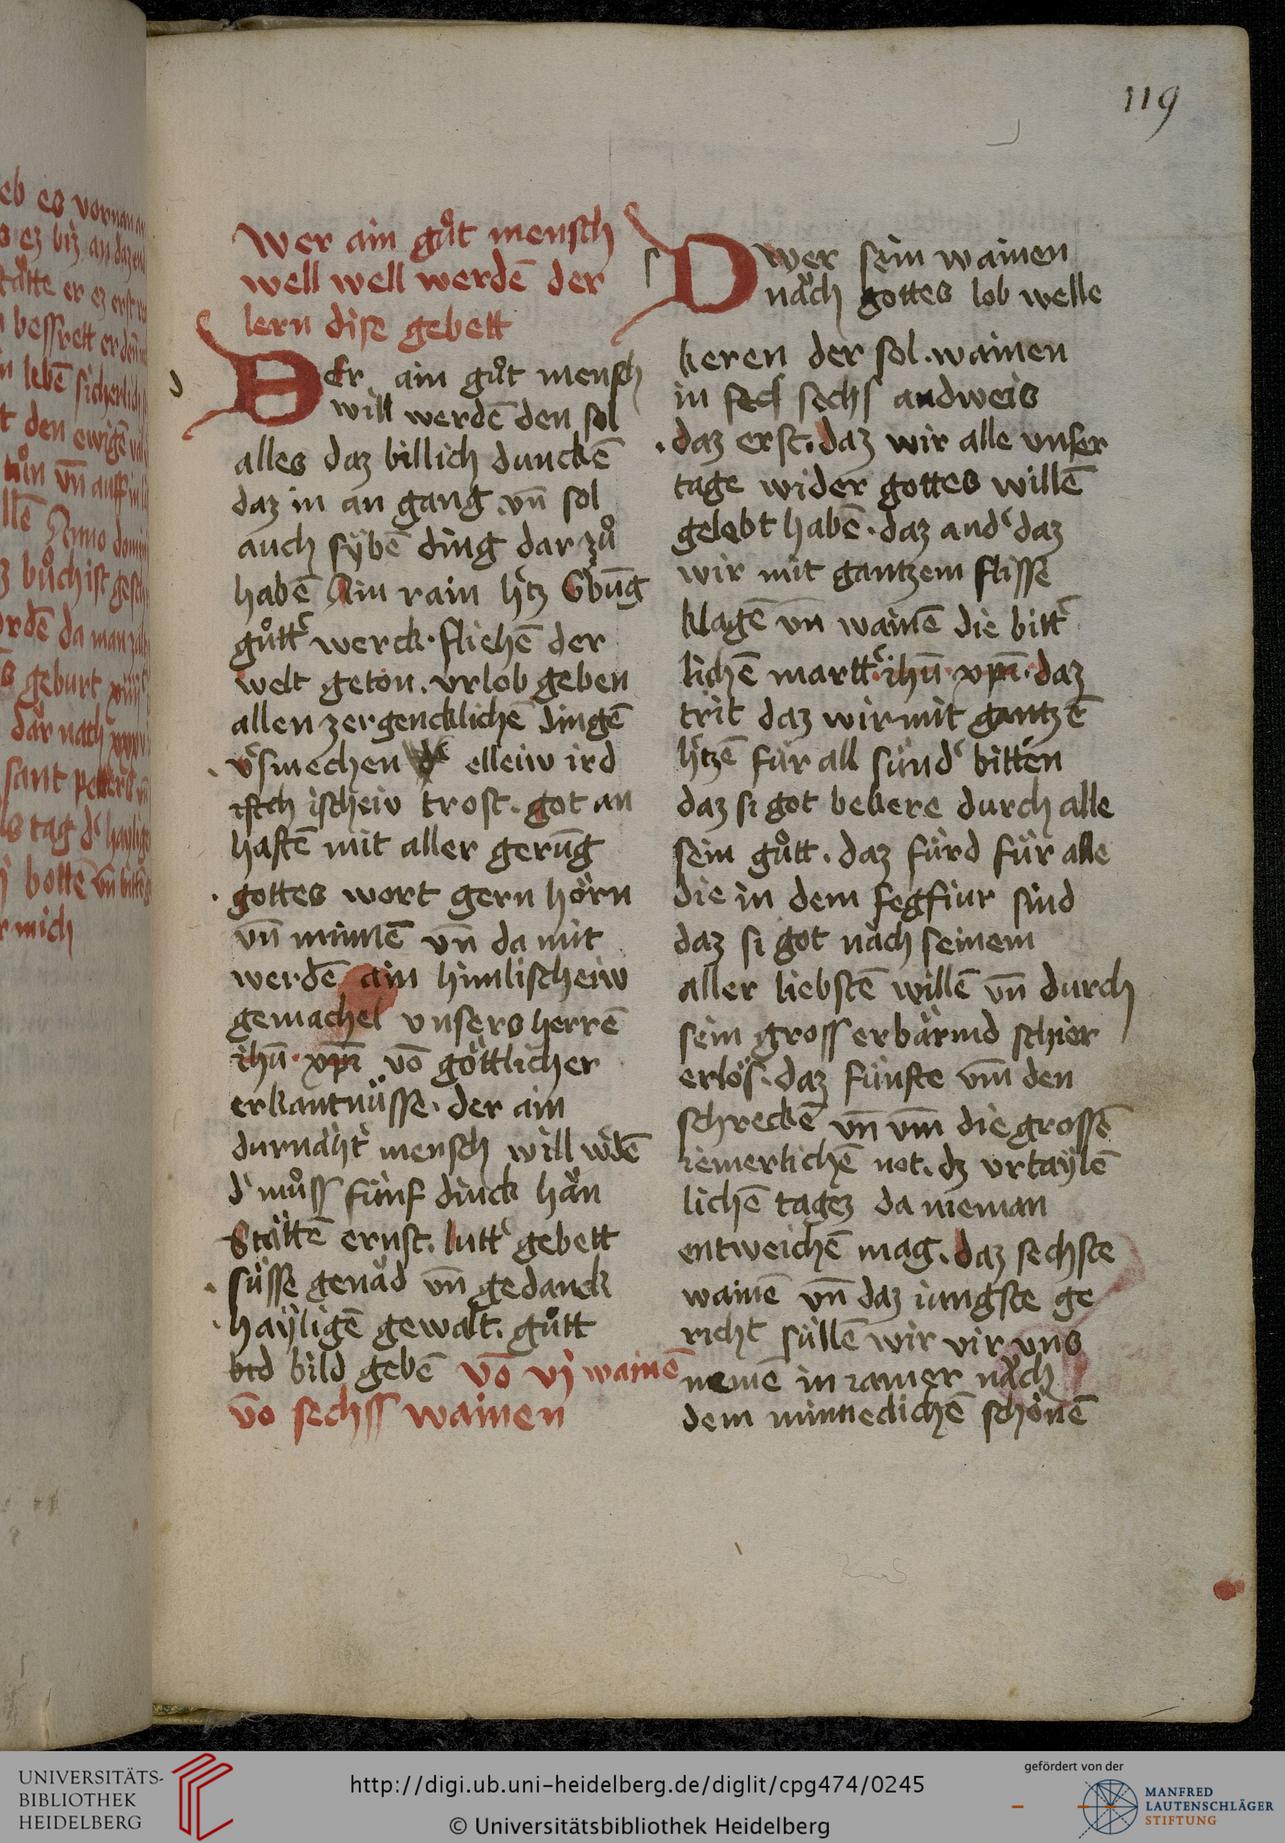 119
wer ain gůt mensch
well well werdē der
lern dise gebett
Der ain gůt mensch
will werdē den sol
alles daz billich dunckē
daz in an gang vn̄ sol
auch sÿbē ding dar zů
habē Ain rain h'tz
gůtt' werck · fliehē der
welt getön . vrlob geben
allen zergencklichē dingē
v'smechen elleiw ird
ischeiv trost . got an
haftē mit aller gerūg
gottes wort gern hörn
vn̄ minnē vn̄ da mit
werdē ain himlischeiw
gemachel vnsers herrē
ihū · xpī vō göttlicher
erkantnüsse · der ain
durnäht' mensch will w'dē
d' můss fünf dinck hån
Stättē ernst . lutt' gebett
süsse genåd vn̄ gedanck
haÿligē gewalt . gůtt
bild gebē vō vj wainē
vō sechss wainen
D wer sein wainen
nåch gottes lob welle
keren der sol . wainen
in sechs andweis
· daz erst . daz wir alle vnser
tage wider gottes willē
gelebt habē · daz and' daz
wir mit gantzem flisse
klagē vn̄ wainē die bitt'
lichē martt' · ihū · xpī · daz
trit daz wir mit gantzē
h'tzē für all sünd' bitten
daz si got bekere durch alle
sein gůtt . daz fürd für alle
die in dem fegfiur sind
daz si got nåch seinem
aller liebstē willē vn̄ durch
sein gross erbärmd schier
erlös . daz fünfte vm̄ den
schreckē vn̄ vm̄ die grossē
iemerlichē not . dz vrtaÿlē
lichē tagez da nieman
entweichē mag . daz sechste
wainē vn̄ daz iungste ge
richt süllē wir vir vns
nemē in iamer nåch
dem minneclichē schönē
eb es vornan
es biz an daz end
er ez erst
bessrett er
lebē sicherlich
den ewigē
tůn vn̄ auff in
Anno domini
bůch ist gesch
ordē da man
geburt
dar nach
sant peters
tag d' haylige
bottē vn̄ bittēs
mich
UNIVERSITÄTS-
BIBLIOTHEK
HEIDELBERG
http://digi.ub.uni-heidelberg.de/diglit/cpg474/0245
© Universitätsbibliothek Heidelberg
gefördert von der
MANFRED
LAUTENSCHLÄGER
STIFTUNG